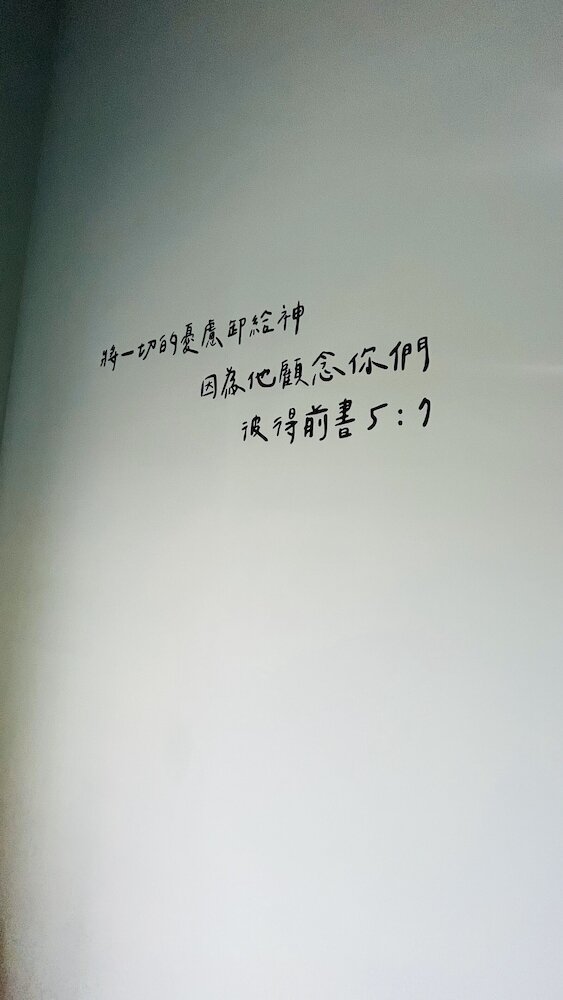 將一切的憂慮卸給神
因為他顧念你們
彼得前書 5:7